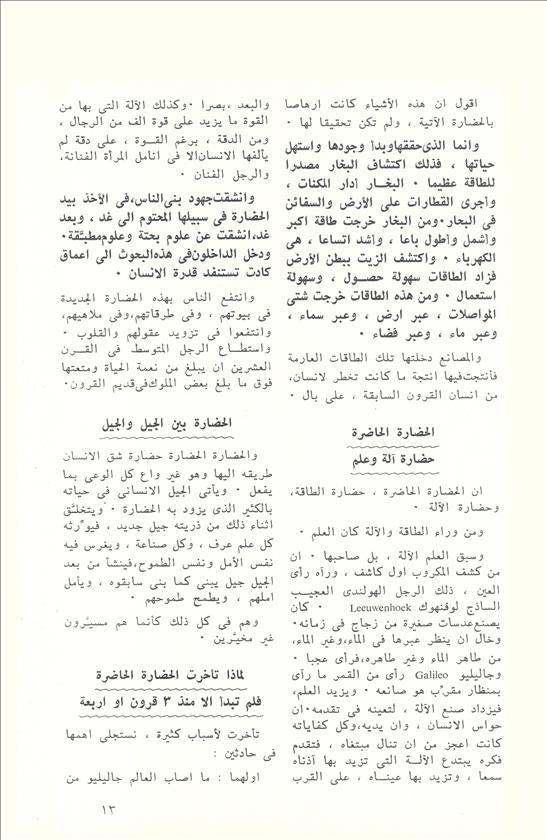 اقول ان هذه الأشياء كانت ارهاصا
بالحضارة الآتية ، ولم تكن تحقيقا لها ٠
وانما الذى حققها وبدأ وجودها واستهل
حياتها ، فذلك اكتشاف البخار مصدرا
للطاقة عظيما ٠ البخار ادار المكنات ،
وأجرى القطارات على الأرض والسفائن
فى البحار ٠ ومن البخار خرجت طاقة اكبر
وأشمل وأطول باعا ، وأشد اتساعا ، هى
الكهرباء ٠ واكتشف الزيت ببطن الأرض
فزاد الطاقات سهولة حصول ، وسهولة
استعمال ٠ ومن هذه الطاقات خرجت شتى
المواصلات ، عبر ارض ، وعبر سماء ،
وعبر ماء ، وعبر فضاء ٠
والمصانع دخلتها تلك الطاقات العارمة
فأنتجت فيها انتجة ما كانت تخطر لانسان،
من انسان القرون السابقة ، على بال ٠
الحضارة الحاضرة
حضارة آلة وعلم
ان الحضارة الحاضرة ، حضارة الطاقة،
وحضارة الآلة ٠
ومن وراء الطاقة والآلة كان العلم ٠
وسبق العلم الآلة ، بل صاحبها ٠ ان
من كشف المكروب اول كاشف ، ورآه رأى
العين ، ذلك الرجل الهولندى العجيب
الساذج لوفنهوك Leeuwenhoek ٠ كان
يصنع عدسات صغيرة من زجاج فى زمانه٠
وخال ان ينظر عبرها فى الماء،وغير الماء،
من طاهر الماء وغير طاهره،فرأى عجبا ٠
وجاليليو Galileo رأى من القمر ما رأى
بمنظار مقرّب هو صانعه ٠ ويزيد العلم،
فيزداد صنع الآلة ، لتعينه فى تقدمه٠ان
حواس الانسان ، وان يديه،وكل كفاياته
كانت اعجز من ان تنال مبتغاه ، فتقدم
فكره يبتدع الآلـة التى تزيد بها آذناه
سمعا ، وتزيد بها عينـاه ، على القرب
والبعد ،بصرا ٠ وكذلك الآلة التى بها من
القوة ما يزيد على قوة الف من الرجال ،
ومن الدقة ، برغم القـوة ، على دقة لم
يألفها الانسان الا فى انامل المرأة الفنانة،
والرجل الفنان ٠
وانشقت جهود بنى الناس،فى الأخذ بيد
الحضارة فى سبيلها المحتوم الى غد ، وبعد
غد،انشقت عن علوم بحتة وعلوم مطبـّقة٠
ودخل الداخلون فى هذه البحوث الى اعماق
كادت تستنفد قدرة الانسان ٠
وانتفع الناس بهذه الحضارة الجديدة
فى بيوتهم ، وفى طرقاتهم،وفى ملاهيهم،
وانتفعوا فى تزويد عقولهم والقلوب ٠
واستطـاع الرجل المتوسط فى القـرن
العشرين ان يبلغ من نعمة الحياة ومتعتها
فوق ما بلغ بعض الملوك فى قديم القرون٠
الحضارة بين الجيل والجيل
والحضارة الحضارة حضارة شق الانسان
طريقه اليها وهو غير واع كل الوعى بما
يفعل ٠ ويأتى الجيل الانسانى فى حياته
بالكثير الذى يزود به الحضارة ٠ ويتخلـّق
اثناء ذلك من ذريته جيل جديد ، فيورّثه
كل علم عرف ، وكل صناعة ، ويغرس فيه
نفس الأمل ونفس الطموح،فينشأ من بعد
الجيل جيل يبنى كما بنى سابقوه ، ويأمل
املهم ، ويطمح طموحهم ٠
وهم فى كل ذلك كأنما هم مسيـّرون
غير مخيـّرين ٠
لماذا تأخرت الحضارة الحاضرة
فلم تبدأ الا منذ ٣ قرون او اربعة
تأخرت لأسباب كثيرة ، نستجلى اهمها
فى حادثين :
اولهما : ما اصاب العالم جاليليو من
١٣